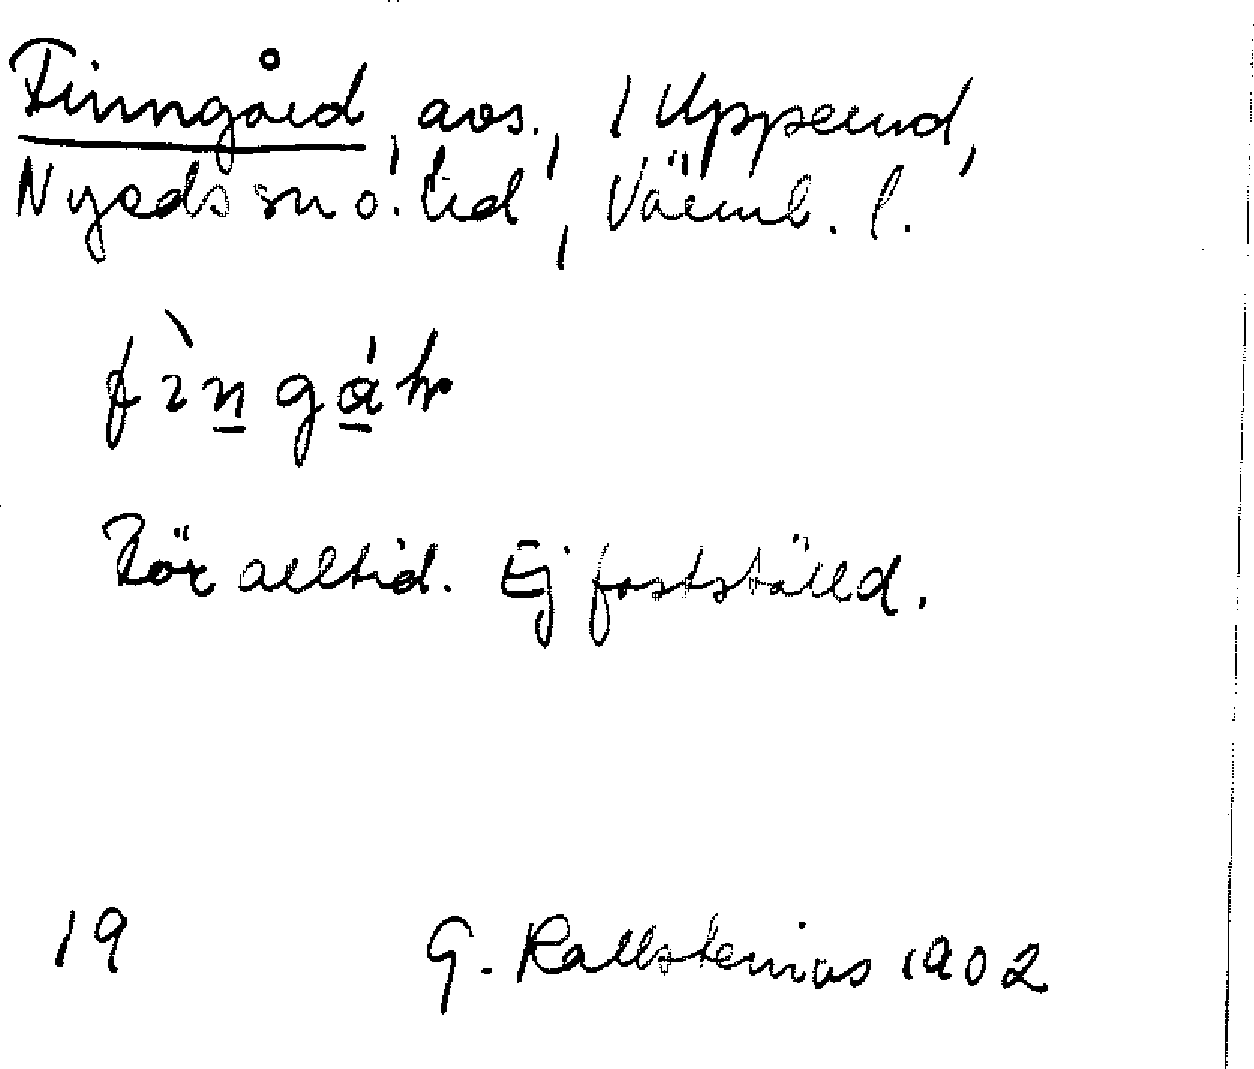 Finngård, avs., i Upperud,
Nyeds sn o. hd, Värml. l.
Bör alltid. Ej fastställd.
19 G. Kallstenius 1902